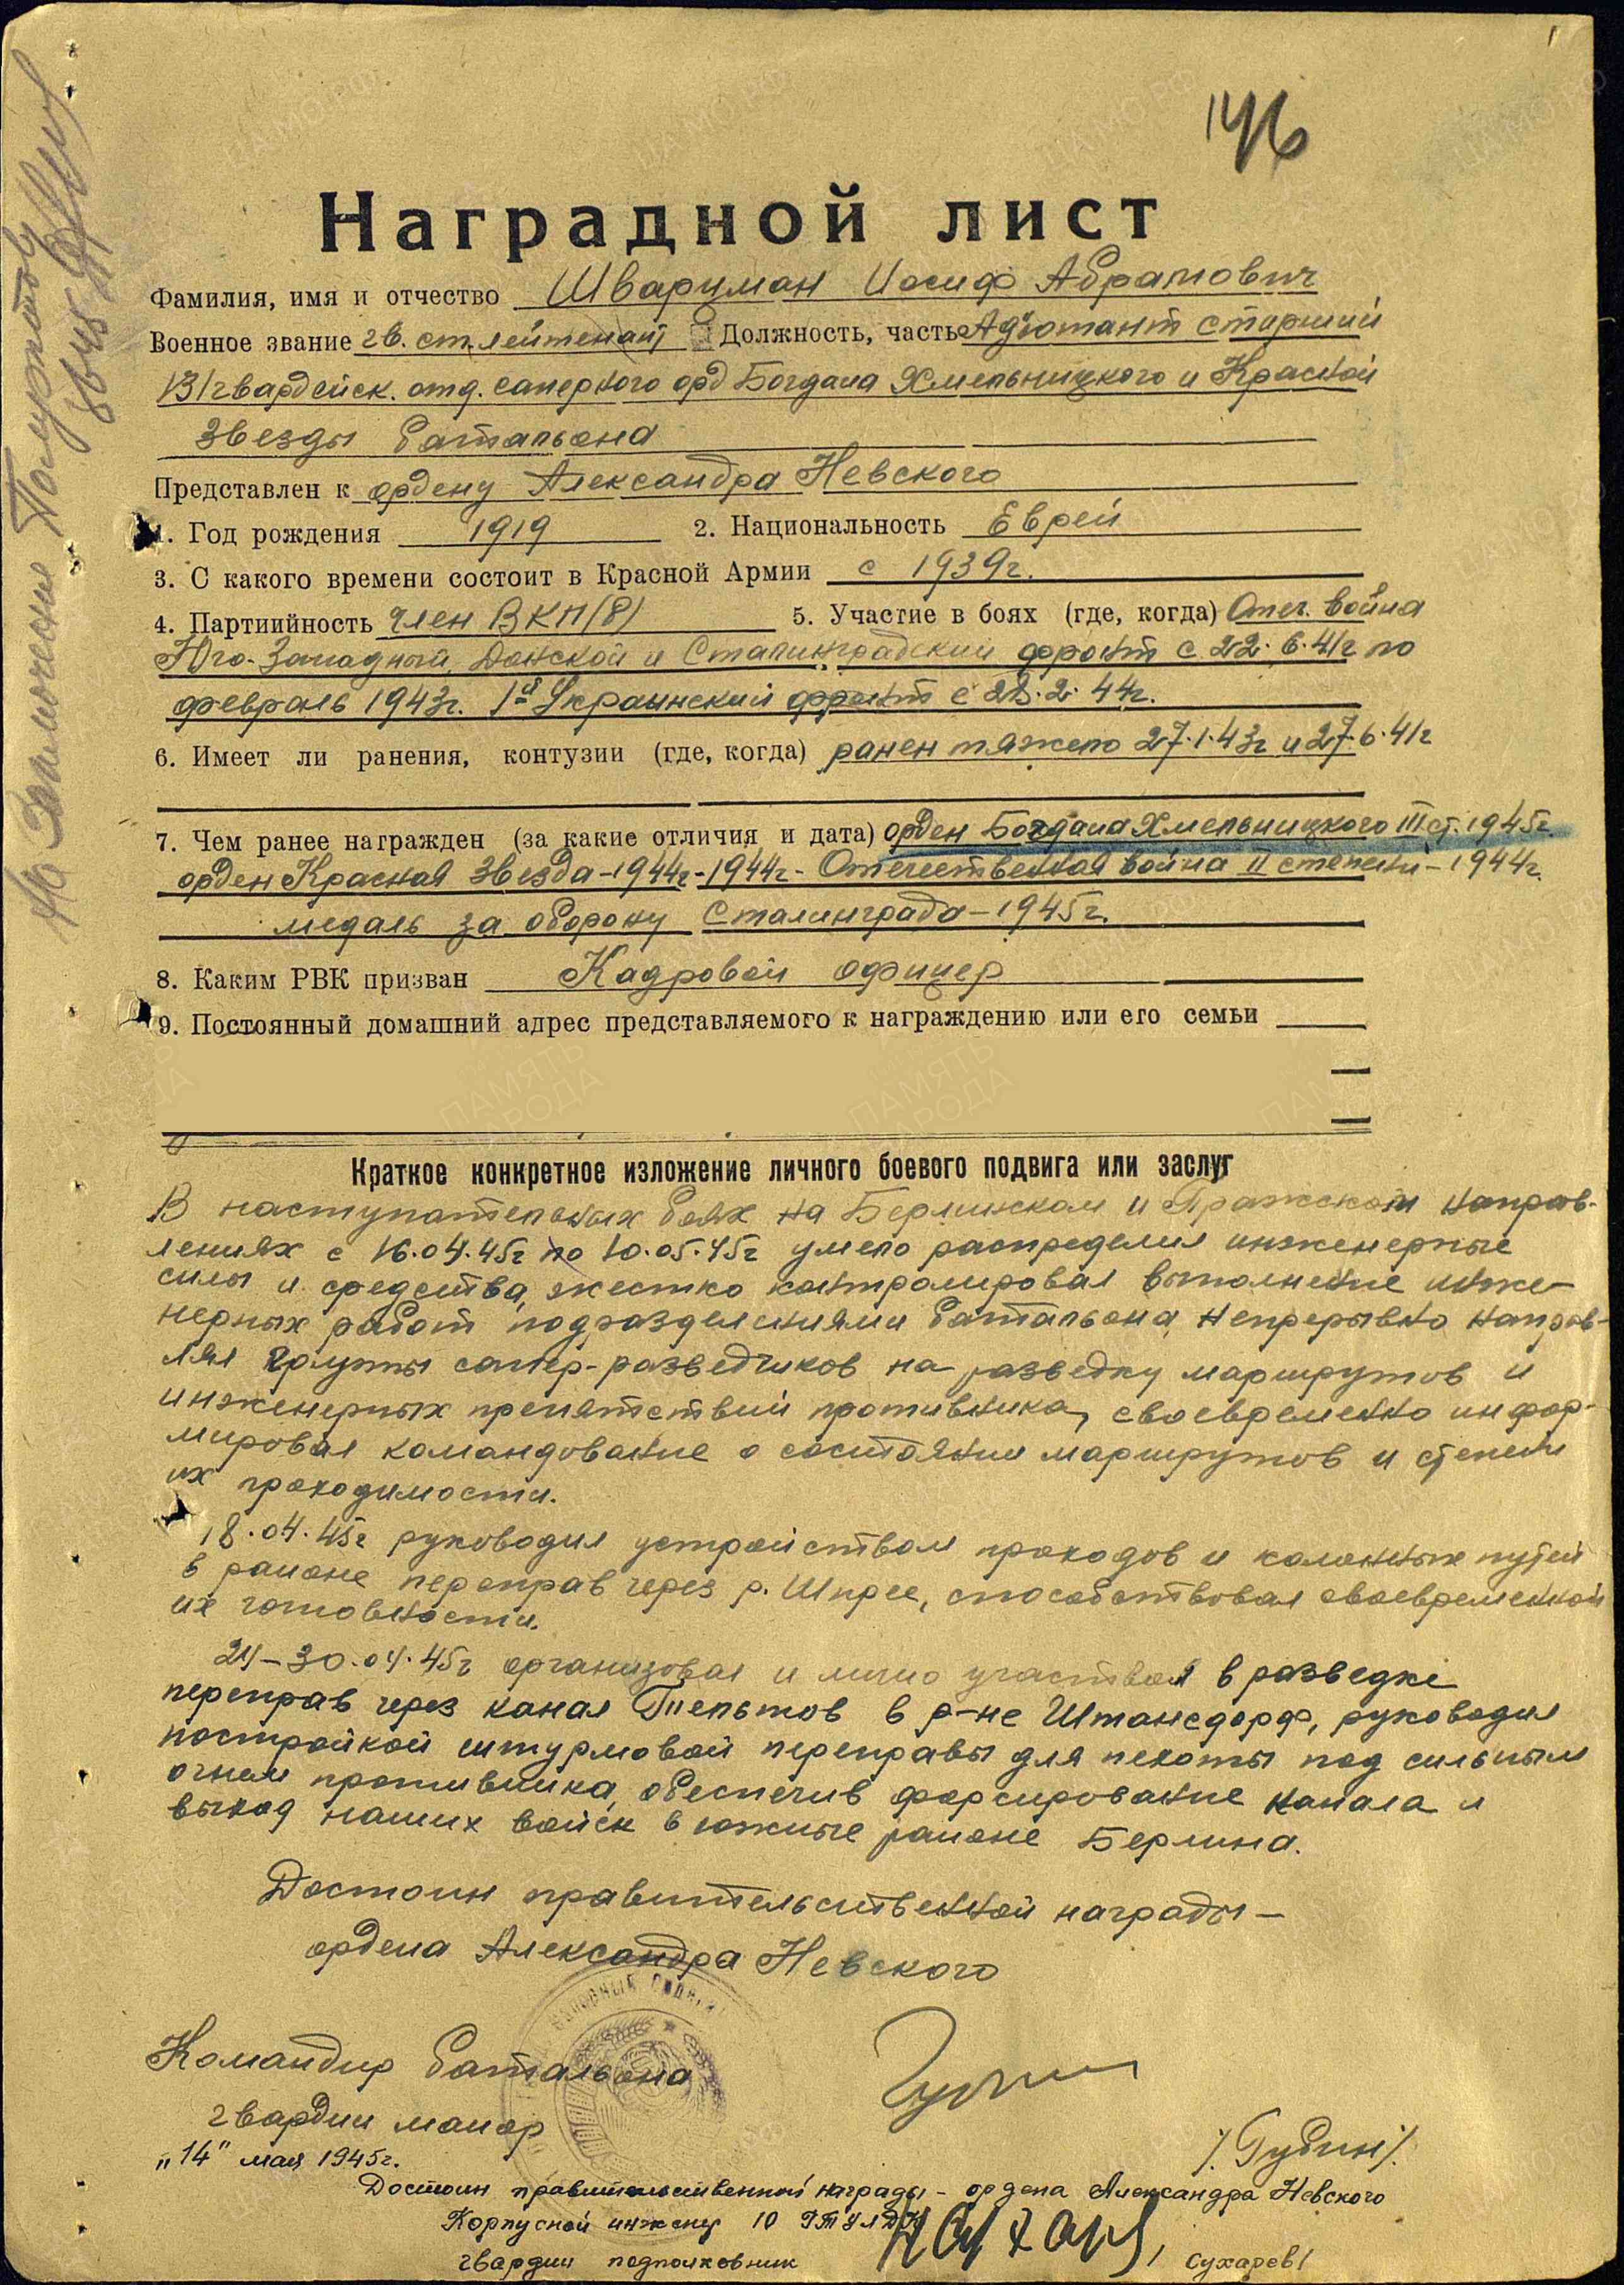 146
Наградной лист
Фамилия, имя и отчество Шварцман Иосиф Абрамович
Военное звание гв. ст. лейтенант Должность, часть Адъютант старший
131 гвардейск. отд. саперного орд Богдана Хмельницкого и Красной
звезды батальона
Представлен к ордену Александра Невского
1. Год рождения 1919 2. Национальность Еврей
3. С какого времени состоит в Красной Армии с 1939г.
4. Партиийность член ВКП(б) 5. Участие в боях (где, когда) Отеч. война
Юго-Западный, Донской и Сталинградский фронт с 22.6.41г по
февраль 1943г. 1й Украинский фронт с 28.2.44г.
6. Имеет ли ранения, контузии (где, когда) ранен тяжело 27.1.43г и 27.6.41г
7. Чем ранее награжден (за какие отличия и дата) орден Богдана Хмельницкого III ст. 1945г.
орден Красная Звезда-1944г-1944г- Отечественная война II степени-1944г.
медаль за оборону Сталинграда-1945г.
8. Каким РВК призван Кадровой офицер
9. Постоянный домашний адрес представляемого к награждению или его семьи
Краткое конкретное изложение личного боевого подвига или заслуг
В наступательных боях на Берлинском и Пражском направ-
лениях с 16.04.45г по 10.05.45г умело распределил инженерные
силы и средства, жестко контролировал выполнение инже-
нерных работ подразделениями батальона, непрерывно направ-
лял группы сапер-разведчиков на разведку маршрутов и
инженерных препятствий противника, своевременно инфор-
мировал командование о состоянии маршрутов и степени
их проходимости.
18.04.45г руководил устройством проходов и колонных путей
в районе переправ через р. Шпрее, способствовал своевременной
их готовности.
24-30.04.45г организовал и лично участвовал в разведке
переправ через канал Тельтов в р-не Штансдорф, руководил
постройкой штурмовой переправы для пехоты под сильным
огнем противника, обеспечив форсирование канала и
выход наших войск в южные районе Берлина.
Достоин правительственной награды -
ордена Александра Невского
Командир батальона
гвардии майор
/Губин/.
"14" мая 1945г.
Достоин правительственной награды - ордена Александра Невского
Корпусной инженер 10 гтулдк
гвардии подполковник Сухарев/